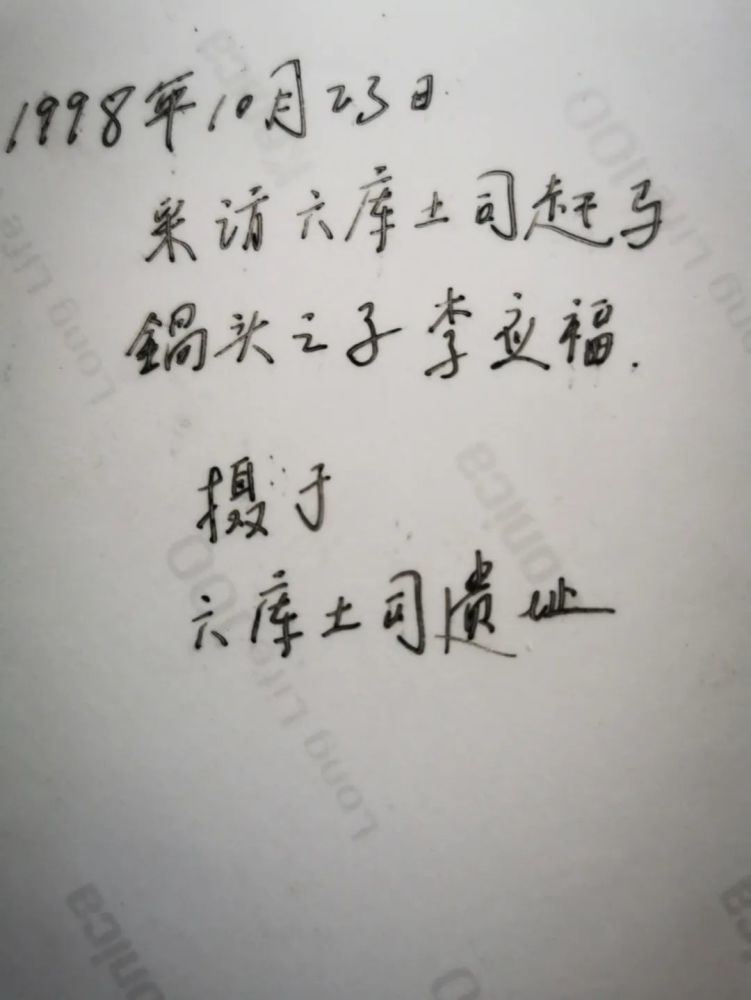 1998年10月23日
采访六库土司赶马
鍋头之子李应福.
摄于
六库土司遗址
Konica
100
Long Life
Long Life 100
Konica
100
Long Life
Konica